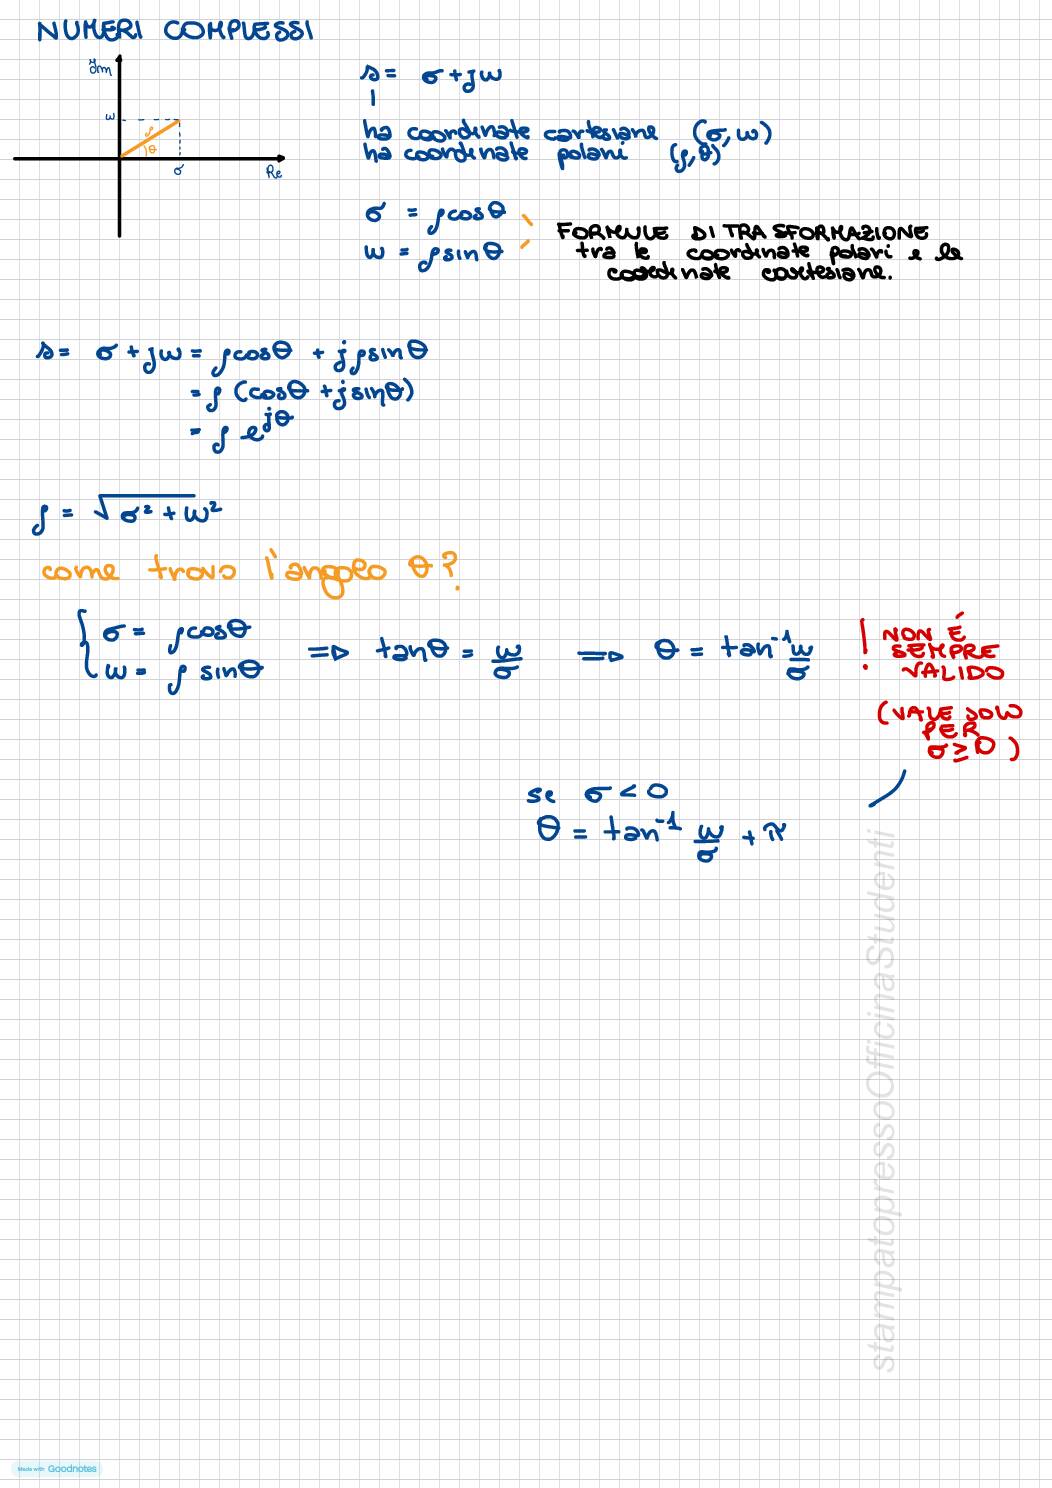 NUMERI COMPLESSI
Im
ω
ρ
θ
σ
Re
s = σ + jω
ha coordinate cartesiane (σ, ω)
ha coordinate polari (ρ, θ)
σ = ρcosθ
ω = ρsinθ
FORMULE DI TRASFORMAZIONE
tra le coordinate polari e le
coordinate cartesiane.
s = σ + jω = ρcosθ + jρsinθ
= ρ (cosθ + jsinθ)
= ρ e^jθ
ρ = √σ² + ω²
come trovo l'angolo θ?
{ σ = ρcosθ
ω = ρ sinθ
=> tanθ = ω/σ => θ = tan⁻¹ ω/σ
! NON É
SEMPRE
VALIDO
(VALE SOLO
PER
σ ≥ 0)
se σ < 0
θ = tan⁻¹ ω/σ + π
stampatopressoOfficinaStudenti
Made with Goodnotes